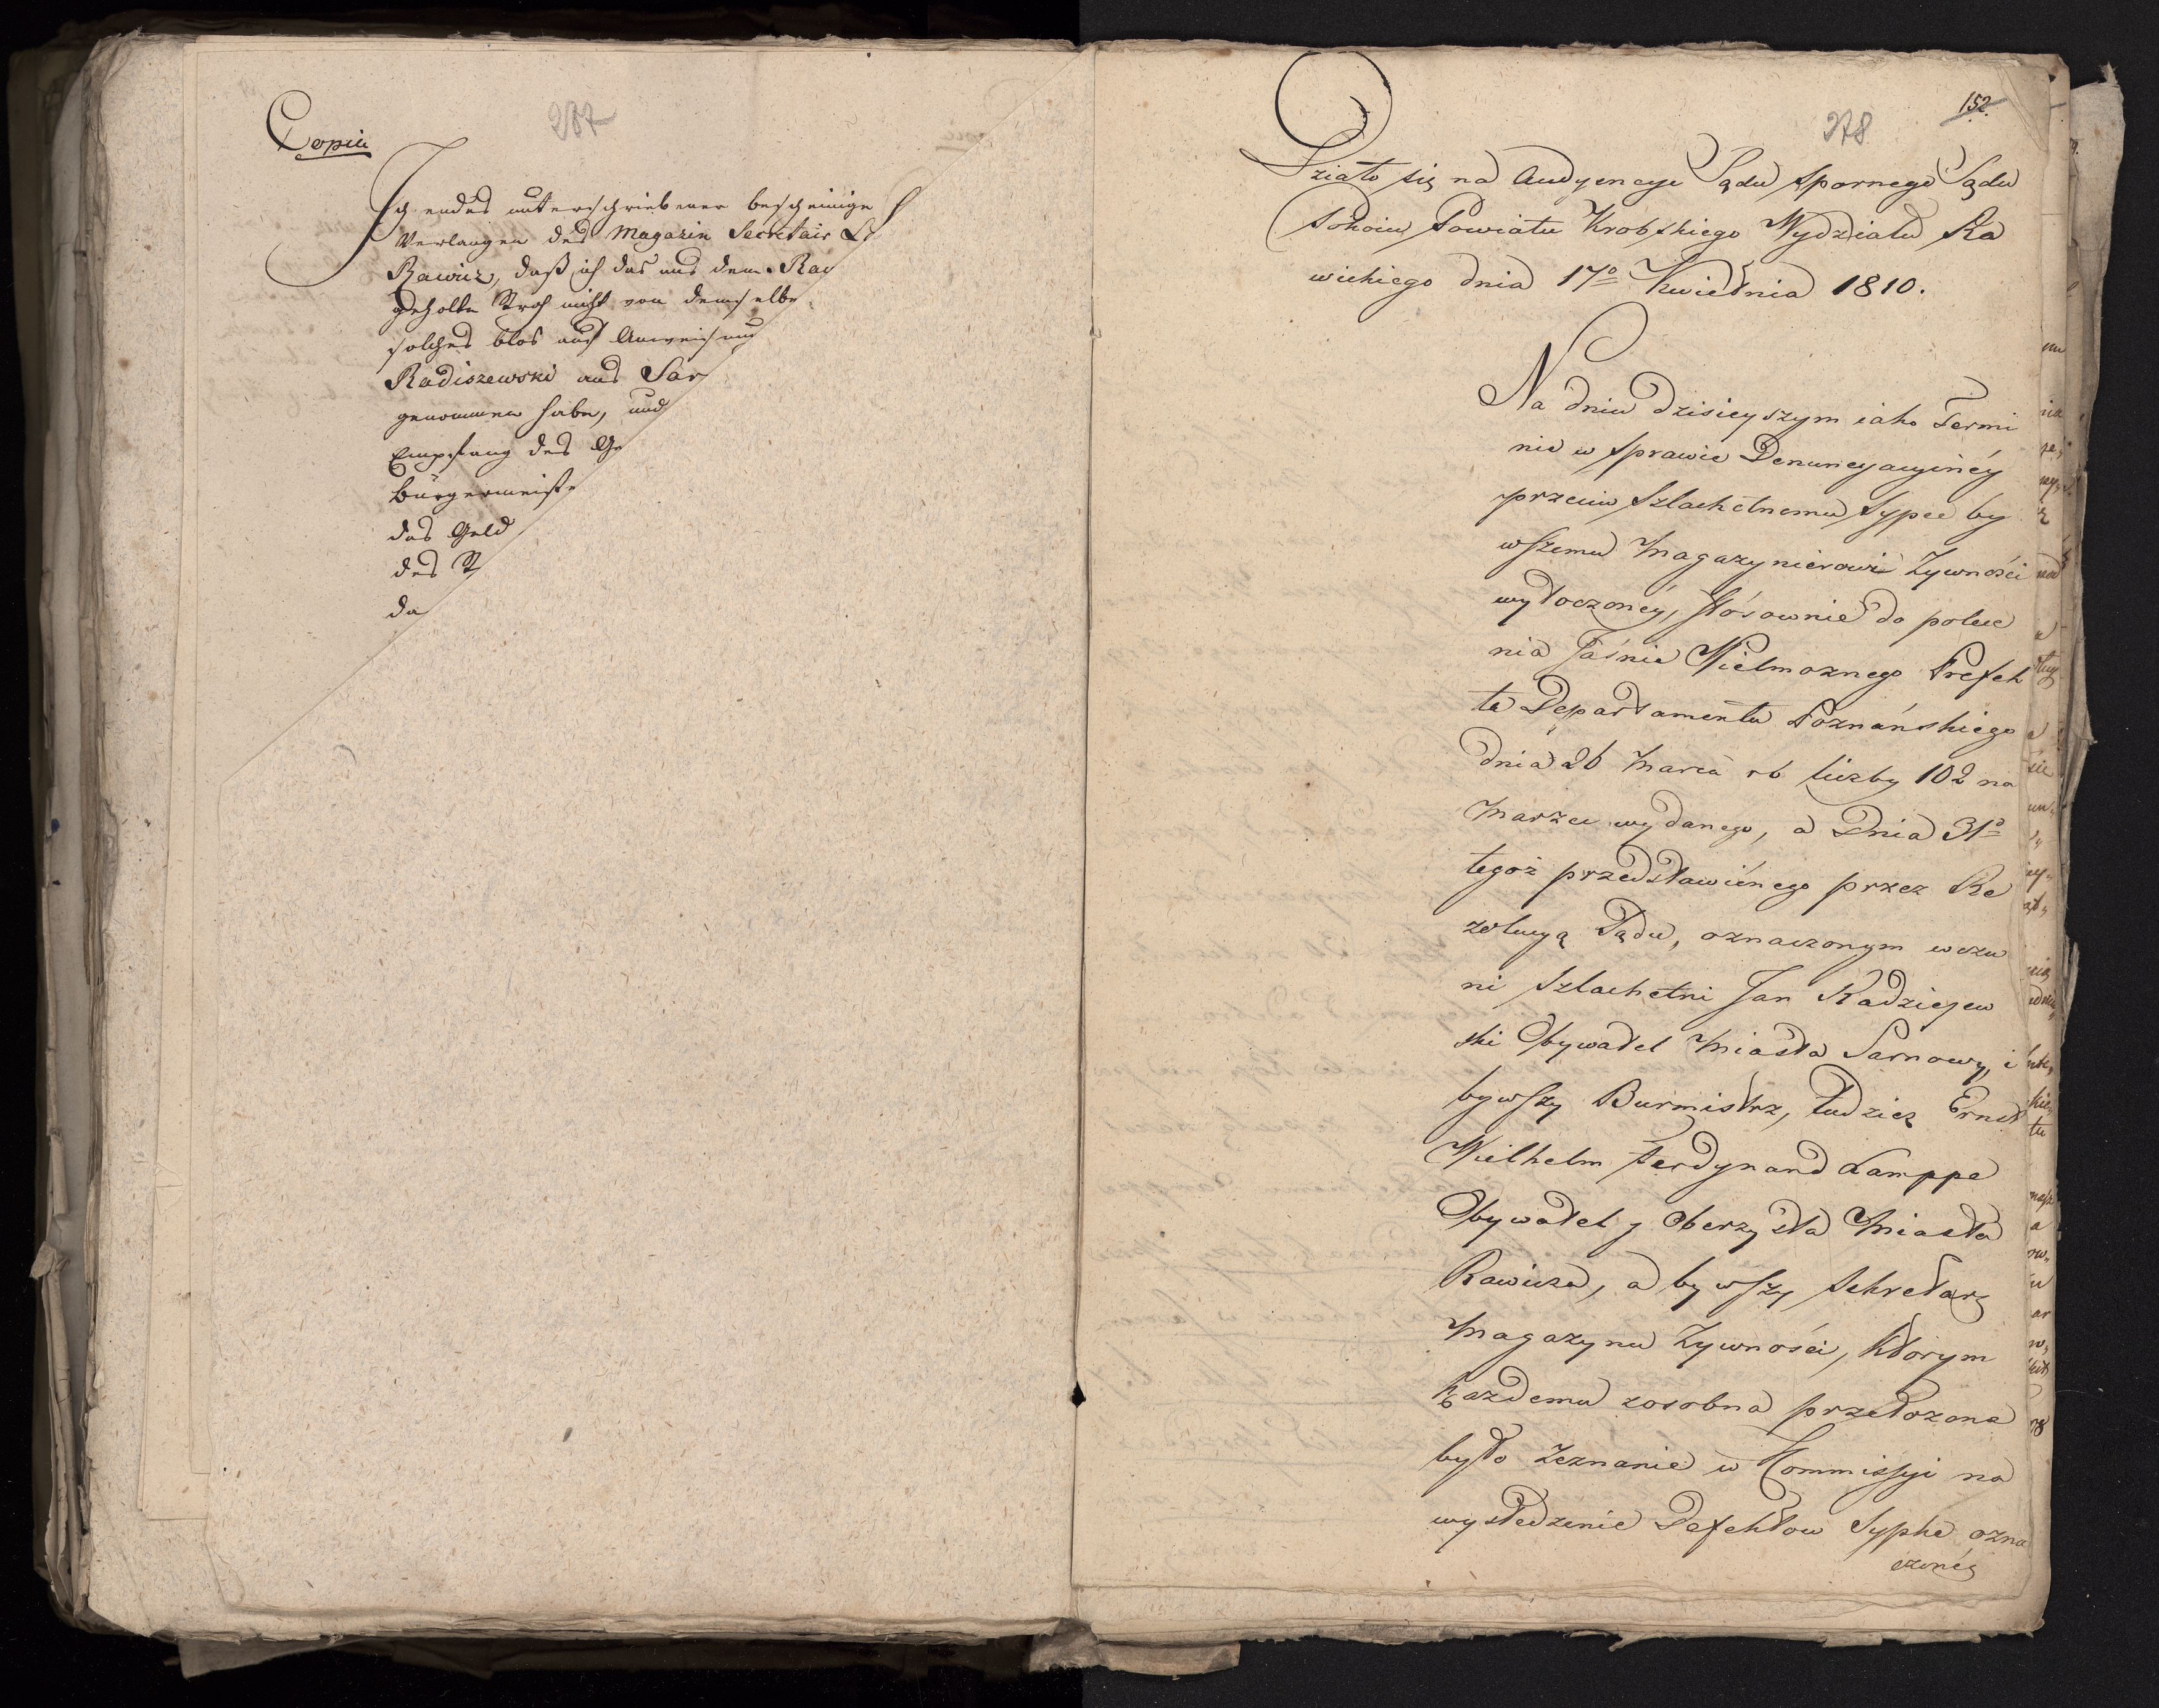 Copia
267
Ich endes unterschriebener bescheinige
Verlangen des Magazin Secretair
Rawicz, daß ich das aus dem Ra
geholte Stroh nicht von demselbe
solches blos auf Anweisung
Radiszewski aus Sar
genommen habe, und
Empfang des Ge
Bürgermeiste
das Geld
des
da
152
278
Działo się na Audyencyi Sądu Spornego Sądu
Pokoiu Powiatu Krobskiego Wydziału Ra
wickiego dnia 17o Kwietnia 1810.
Na dniu dzisieyszym iako Termi
nie w sprawie Denuncyacyinéy
przeciw Szlachetnemu Sypce by
wszemu Magazynierowi Zywności
wytoczonéy, stósownie do polece
nia Jaśnie Wielmoznego Prefek
ta Departamentu Poznańskiego
dnia 26 Marca rb liczby 102 na
Marzec wydanego, a Dnia 31o
tegoż przedstawiénego przez Re
zolucyą Sądu, oznaczonym wezwa
ni Szlachetni Jan Radziejew
ski Obywatel Miasta Sarnowy, i
bywszy Burmistrz, tudzież Ernst
Wielhelm Ferdynand Lamppe
Obywatel y Oberzysta Miasta
Rawicza, a bywszy Sekretarz
Magazynu Zywności, którym
kazdemu zosobna przełozone
było Zeznanie w Kommissyi na
wysledzenie Defektow Sypke ozna
czonéy